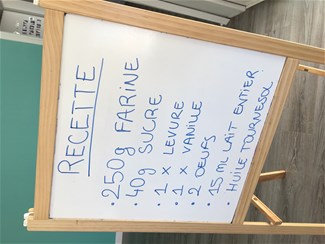 RECETTE
• 250g FARINE
• 40g SUCRE
• 1 x LEVURE
• 1 x VANILLE
• 2 OEUFS
• 15 ML LAIT ENTIER
• HUILE TOURNESOL